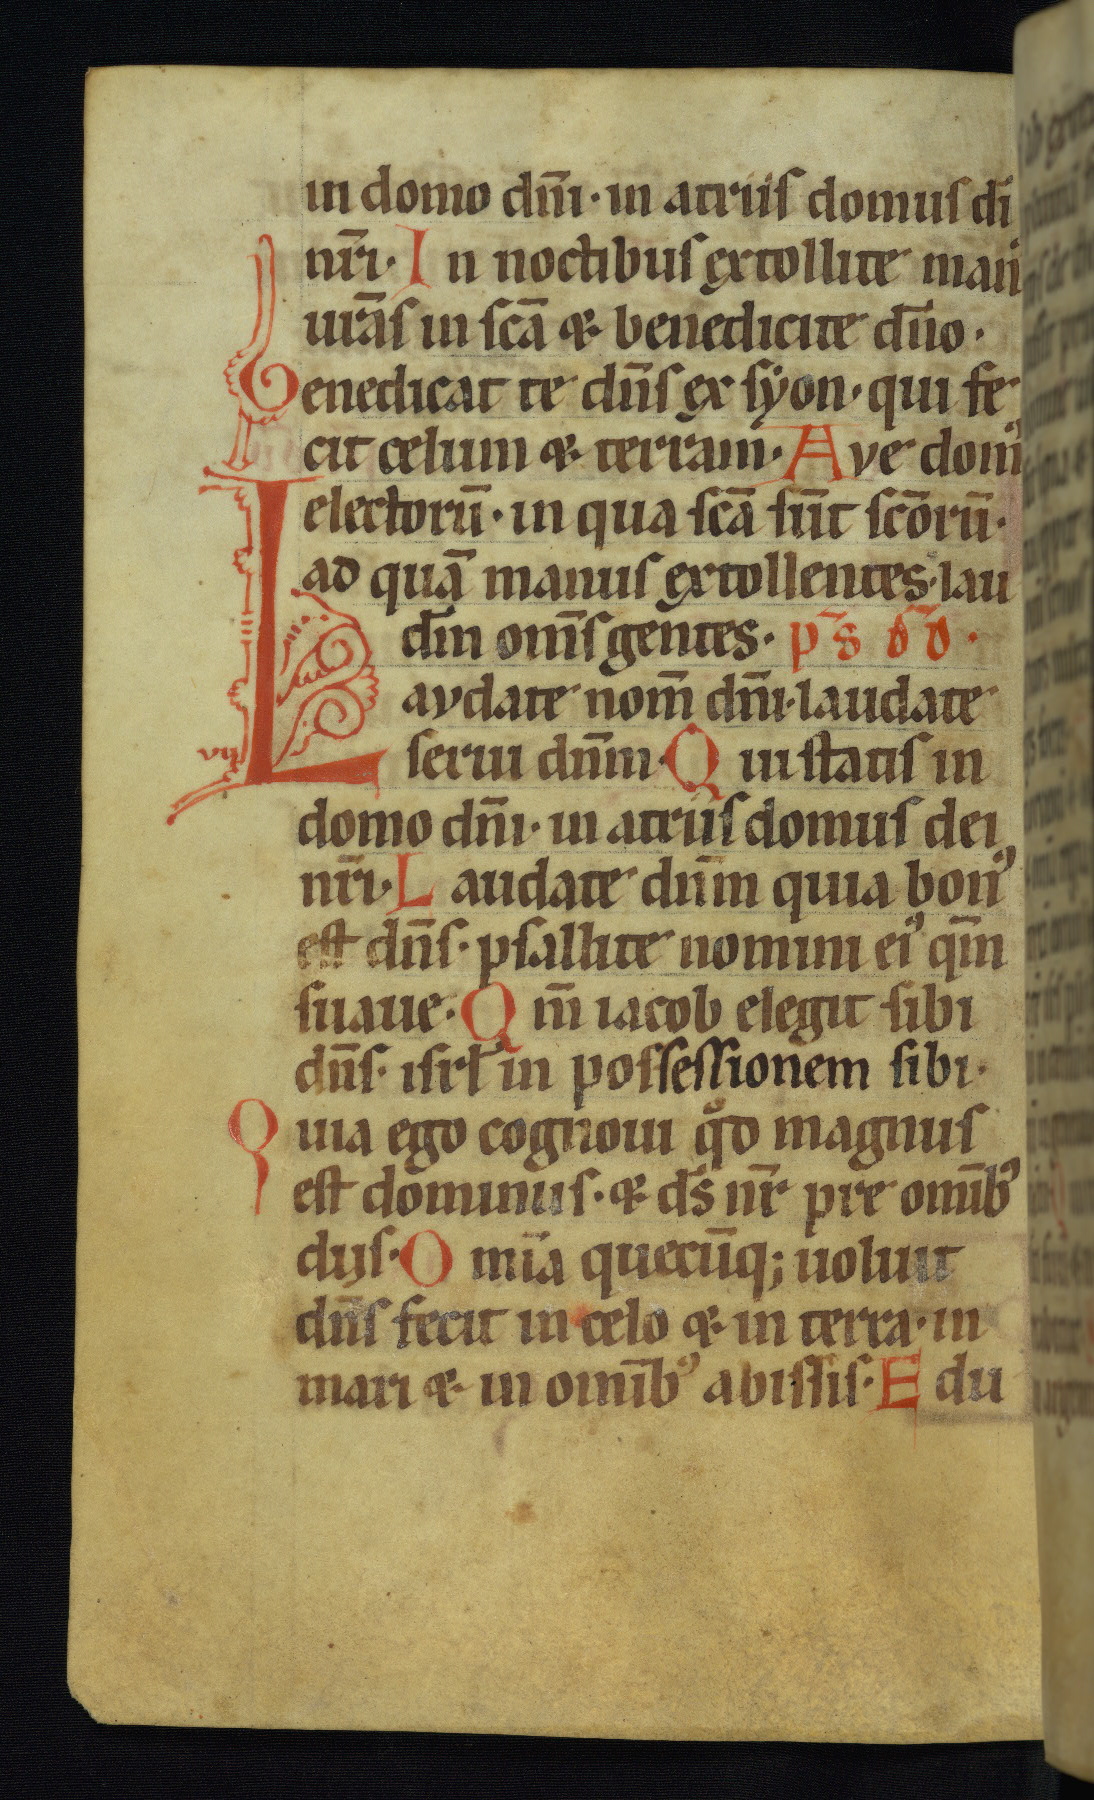 in domo dn̄i· in atriis domus dī
nr̄i· In noctibus extollite man
ur̄as in scā & benedicite dn̄o·
Benedicat te dn̄s ex syon· qui fe
cit celum & terram· Ave domꝰ
electorū· in qua scā sūt scōrū·
ad quā manus extollentes·lau
dēn om̄s gentes· p̄s dd̄·
Laudate nom̄ dn̄i·laudate
serui dn̄m· Qui statis in
domo dn̄i· in atriis domus dei
nr̄i· Laudate dn̄m quia bonꝰ
est dn̄s· psallite nomini eiꝰ qm̄
suaue· Qm̄ iacob elegit sibi
dn̄s· isrl̄ in possessionem sibi·
Quia ego cognoui qͦd magnus
est dominus· & ds̄ nr̄ pre omībꝰ
dijs· Omīa quecūq; uoluit
dn̄s fecit in celo & in terra· in
mari & in omībꝰ abissis· Edu
vij